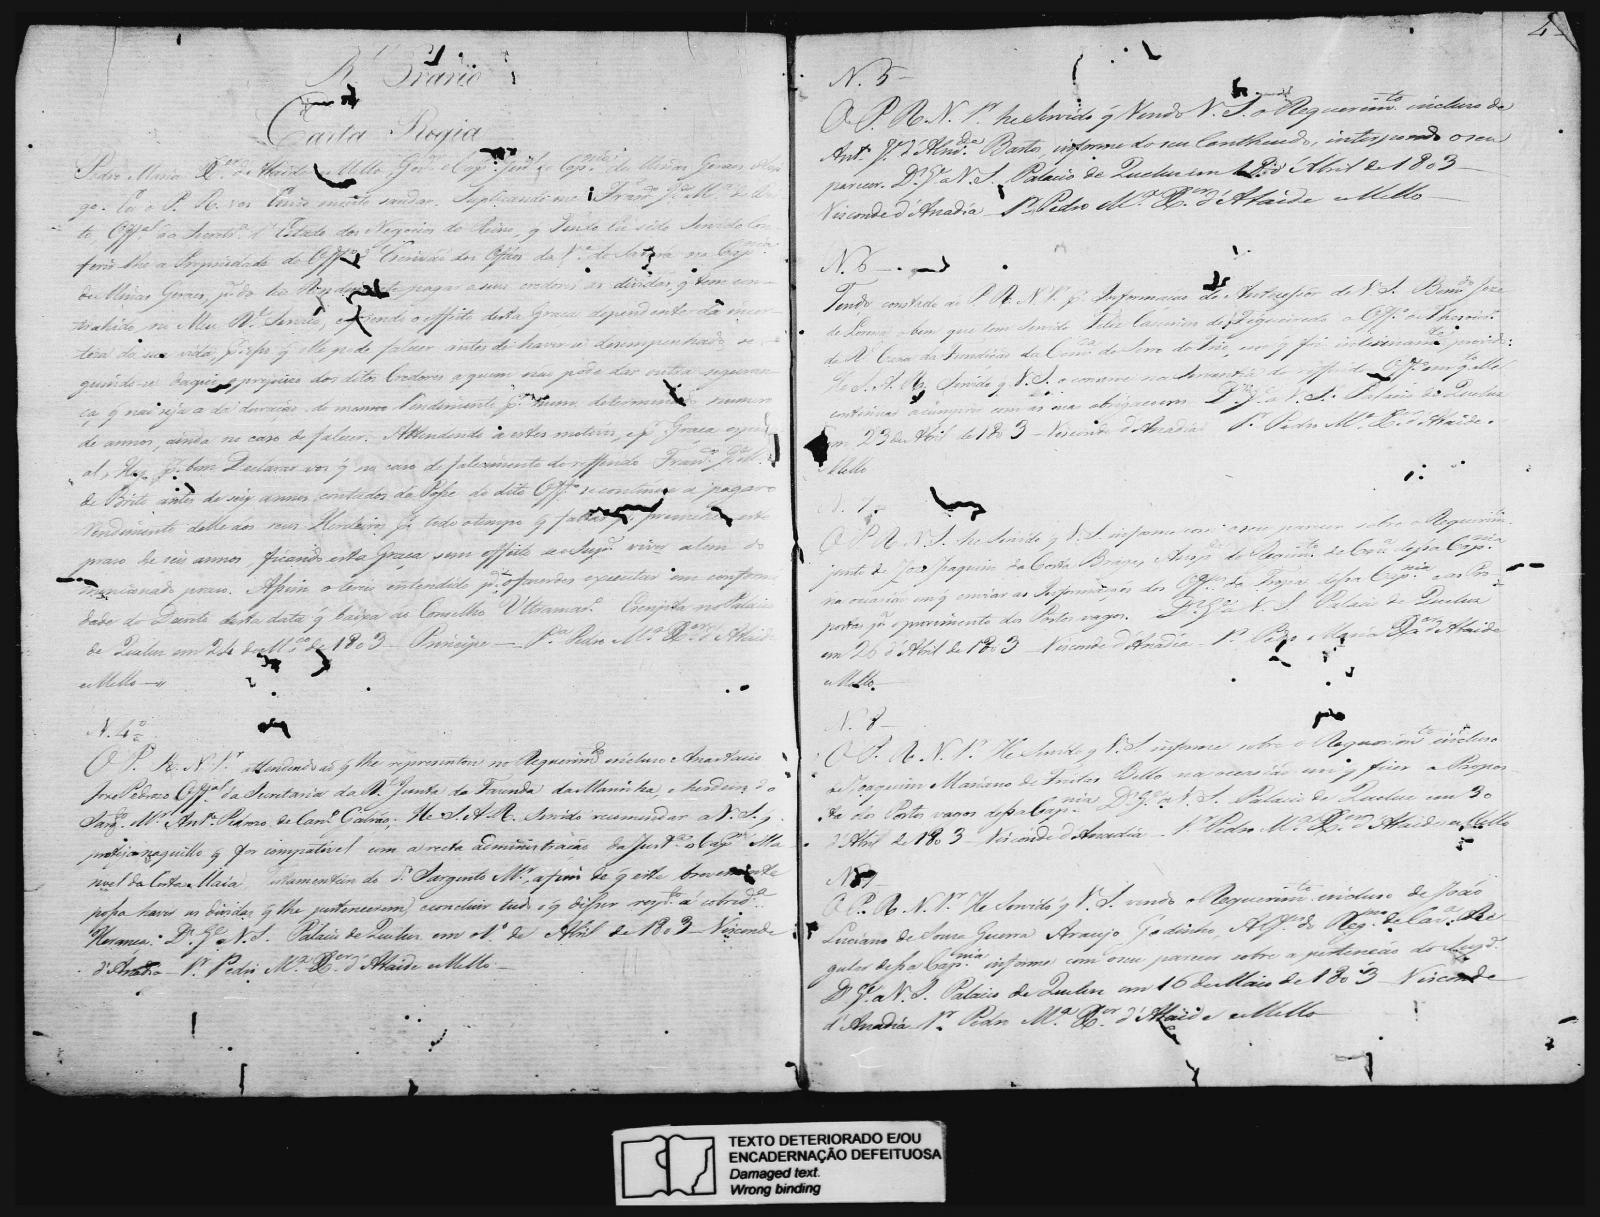 R.l Erario
Carta Regia
Pedro Maria X.er d'Ataide e Mello, Gov.or e Cap.m Gen.l da Cap.nia de Minas Geraes, Ami
go. Eu o P. R. vos Envio muito saudar. Suplicando me Fran.co J.e M.a de Bri
to, Off.al da Secret.a d'Estado dos Negocios do Reino, q Tendo lhe sido Servido Con
ferir lhe a Propriedade do Off.o d'Escrivão dos Orfãos da V.a do Sabará na Cap.nia
de Minas Geraes, p.a do seo Rendim.to pagar a seus credores as dividas, q tem con
trahido no Meu R.l Serviço, e sendo o effeito desta Graça dependente da incer
teza da sua vida, p.r isso q elle pode falecer antes de haver se desempenhado, se
guindo-se daqui o prejuizo dos ditos Credores a quem não póde dar outra seguran
ça, q não seja a da duração do mesmo Rendimento p.r hum determinado numero
de annos, ainda no caso de falecer. Attendendo a estes motivos, e p.r Graça especi
al, Hey p.r bem Declarar vos q no caso de falecimento do refferido Fran.co J.e M.a
de Brito antes de seis annos contados da Posse do dito Off.o se continue a pagar o
Rendimento delle aos seus Herdeiros p.r todo o tempo q faltar p.a preencher este
prazo de seis annos, ficando esta Graça sem effeito se o Sup.e viver alem do
mencionado prazo. Assim o tereis entendido p.a o fazerdes executar em conformi
dade do Decreto desta data q baixa ao Conselho Ultramar.o Escripta no Palacio
de Queluz em 24 de M.ço de 1803 — Principe — P.a Pedro M.a X.er d'Ataide
e Mello —
N. 4.o
O P. R. N. S.r attendendo ao q lhe representou no Requerim.to incluso Anastacio
Joze Pedrozo Off.al da Secretaria da R.l Junta da Fazenda da Marinha, e herdeiro do
Sarg.to M.r Ant.o Pedrozo de Carv.o Galvão; He S. A. R. Servido recomendar a V. S. q
proteja naquillo q for compativel com a recta administração da Just.a o Cap.m Ma
noel da Costa Maia testamenteiro do d.o Sargento M.r, a fim de q este brevemente
possa haver as dividas q lhe pertencerem, e concluir tudo o q disser resp.to á sobred.a
Herança. D.s G.e a V. S. Palacio de Queluz em 1.o de Abril de 1803 — Visconde
d'Anadia — S.r Pedro M.a X.er d'Ataide e Mello —
4
N. 5 —
O P. R. N. S.r he Servido q Vendo V. S. o Requerim.to incluso de
Ant.o J.e d'Almd.a Bastos, informe do seu Contheudo, interpondo o seu
parecer. D.s G.e a V. S. Palacio de Queluz em d'Abril de 1803 —
Visconde d'Anadia — S.r Pedro M.a X.er d'Ataide e Mello —
N. 6 —
Tendo constado ao P. R. N. S.r p.r Informação do Antecessor de V. S. Bern.do Joze
de Lorena, o bem que tem Servido Feliz Casimiro de Figueiredo o Off.o de Thesour.o
da R.l Caza da Fundição da Com.ca do Serro do Frio, em q foi interinam.te provido:
He S. A. R. Servido q V. S. o conserve na Serventia do refferido Off.o em q.to elle
continuar a cumprir com as suas obrigaçoens. D.s G.e a V. S. Palacio de Queluz
em 23 de Abril de 1803 — Visconde d'Anadia S.r Pedro M.a X.er d'Ataide e
Mello
N. 7
O P. R. N. S. he Servido q V. S. informe com o seu parecer sobre o Requerim.to
junto de Joze Joaquim da Costa Braga, do Regim.to de Cav.a dessa Cap.nia
na ocasião em q enviar as Informaçoens dos Off.es da Tropa dessa Cap.nia e as Pro
postas p.a o provimento dos Postos vagos. D.s G.e a V. S. Palacio de Queluz
em 26 d'Abril de 1803 — Visconde d'Anadia — S.r Pedro Maria X.er d'Ataide
e Mello
N. 8 —
O P. R. N. S.r He Servido q V. S. informe sobre o Requerim.to incluso
de Joaquim Mariano de Freitas Bello na occasião em q fizer a Propos
ta dos Postos vagos dessa Cap.nia D.s G.e a V. S. Palacio de Queluz em 30
d'Abril de 1803 — Visconde d'Anadia — S.r Pedro M.a X.er d'Ataide e Mello
N. 9
O P. R. N. S.r He Servido q V. S. vendo o Requerim.to incluso de João
Luciano de Souza Guerra Araujo Godinho, Alf.es do Reg.to de Cav.a Re
gular dessa Cap.nia informe com o seu parecer sobre a pertenção do Supp.e
D.s G.e a V. S. Palacio de Queluz em 16 de Maio de 1803 — Visconde
d'Anadia S.r Pedro M.a X.er d'Ataide e Mello
TEXTO DETERIORADO E/OU
ENCADERNAÇÃO DEFEITUOSA
Damaged text.
Wrong binding